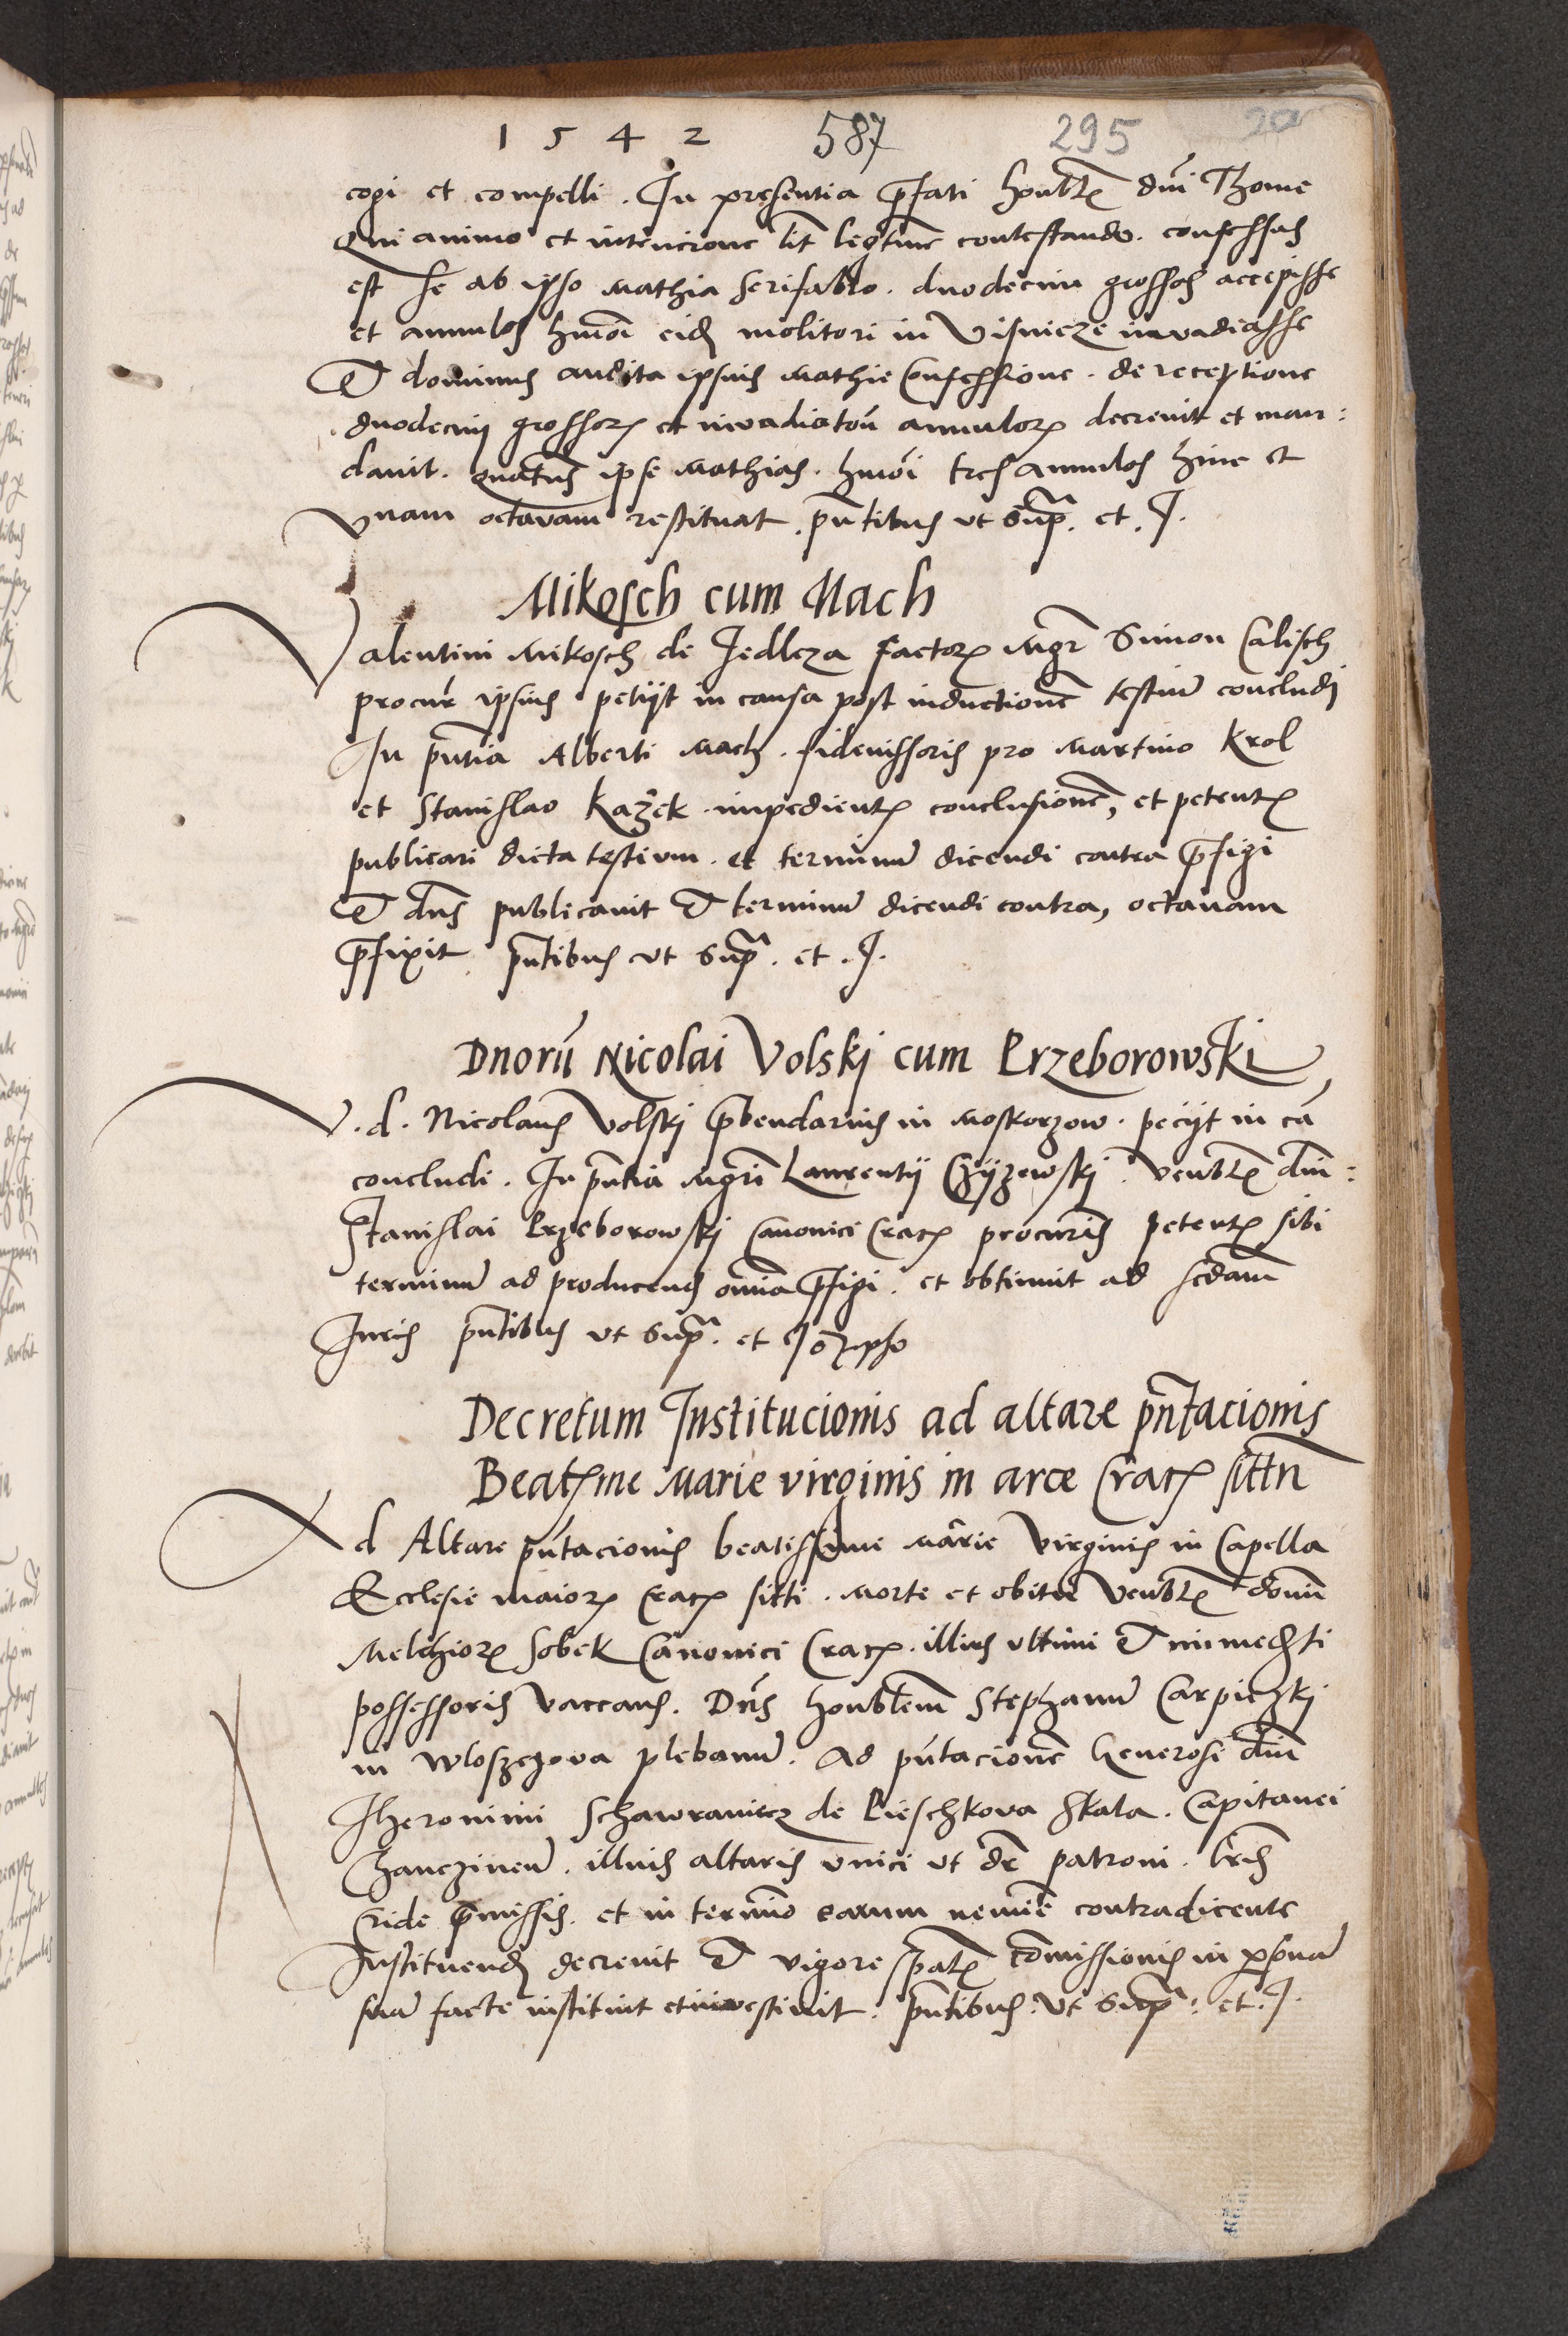 1 5 4 2 587 295
cogi et compelli . In presentia p̄fati honbl̄ dn̄i Thome
Qui animo et intencione lit̄ legtīme contestando . confessus
est se ab ipso Mathia ferifabro . duodecim grossos accepisse
et annulos hmōi eid molitori in Visnicze invadiasse
Et dominus audita ipsius Mathie Confessione . de receptione
duodecim grossor et invadiatōn annulor decrevit et man :
davit . quatenus ipse Mathias . hmōi tres annulos hinc et
Vnam octavam restituat . pn̄tibus vt sup̄ . et . J .
Mikosch cum Mach
Valentini Mikosch de Jedlcza factor Mgr̄ Simon Calisch
procur̄ ipsius petijt in causa post inductionē testium concludj
In pn̄tia Alberti Mach . fideiussoris pro Martino Krol
et Stanislao Kazek impedient conclusionē , et petent
publicari dicta testium . et terminū dicendi contra p̄figi
Et dn̄s publicavit Et terminū dicendi contra , octavam
p̄fixit pn̄tibus vt sup̄ . et . J .
Dnorū Nicolai Volskj cum Przeborowskj
V . d . Nicolaus Volskj p̄bendarius in Moskorzow . peciit in cā
concludi . In pn̄tia Mgrī Laurentij Czyzewskj . Venbl̄ dn̄i :
Stanislai Przeborowskj Canonici Crac procuris petent sibi
terminū ad producend omīa p̄figi . et obtinuit ad scdam̄
Juris pn̄tibus vt sup̄ . et
Decretum Institucionis ad altare pn̄tacionis
Beatme Marie virginis in arce Crac sittn̄
Ad Altare pn̄tacionis beatissime Marie Virginis in Capella
Ecclesie maior Crac sitti . Morte et obitu Venbl̄ domi
Melchior Sobek Canonici Crac . illius vltimi Et immediti
possessoris vaccans . Dn̄s honblem̄ Stephanū Carpiczkj
in Wloszczova plebanū . Ad pn̄tacionē Generosi dn̄i
Jheronimi Schawraniecz de Pieschkova Skala . Capitanei
Chanczinen̄ . illius altaris vnici vt dr̄ patroni . lrīs
Cride p̄missis . et in termīo earum nemīe contradicente
Instituend decrevit Et vigore spāt cōmissionis in psonā
suā facte instituit et investivit . pn̄tibus . vt sup̄ . et . J .